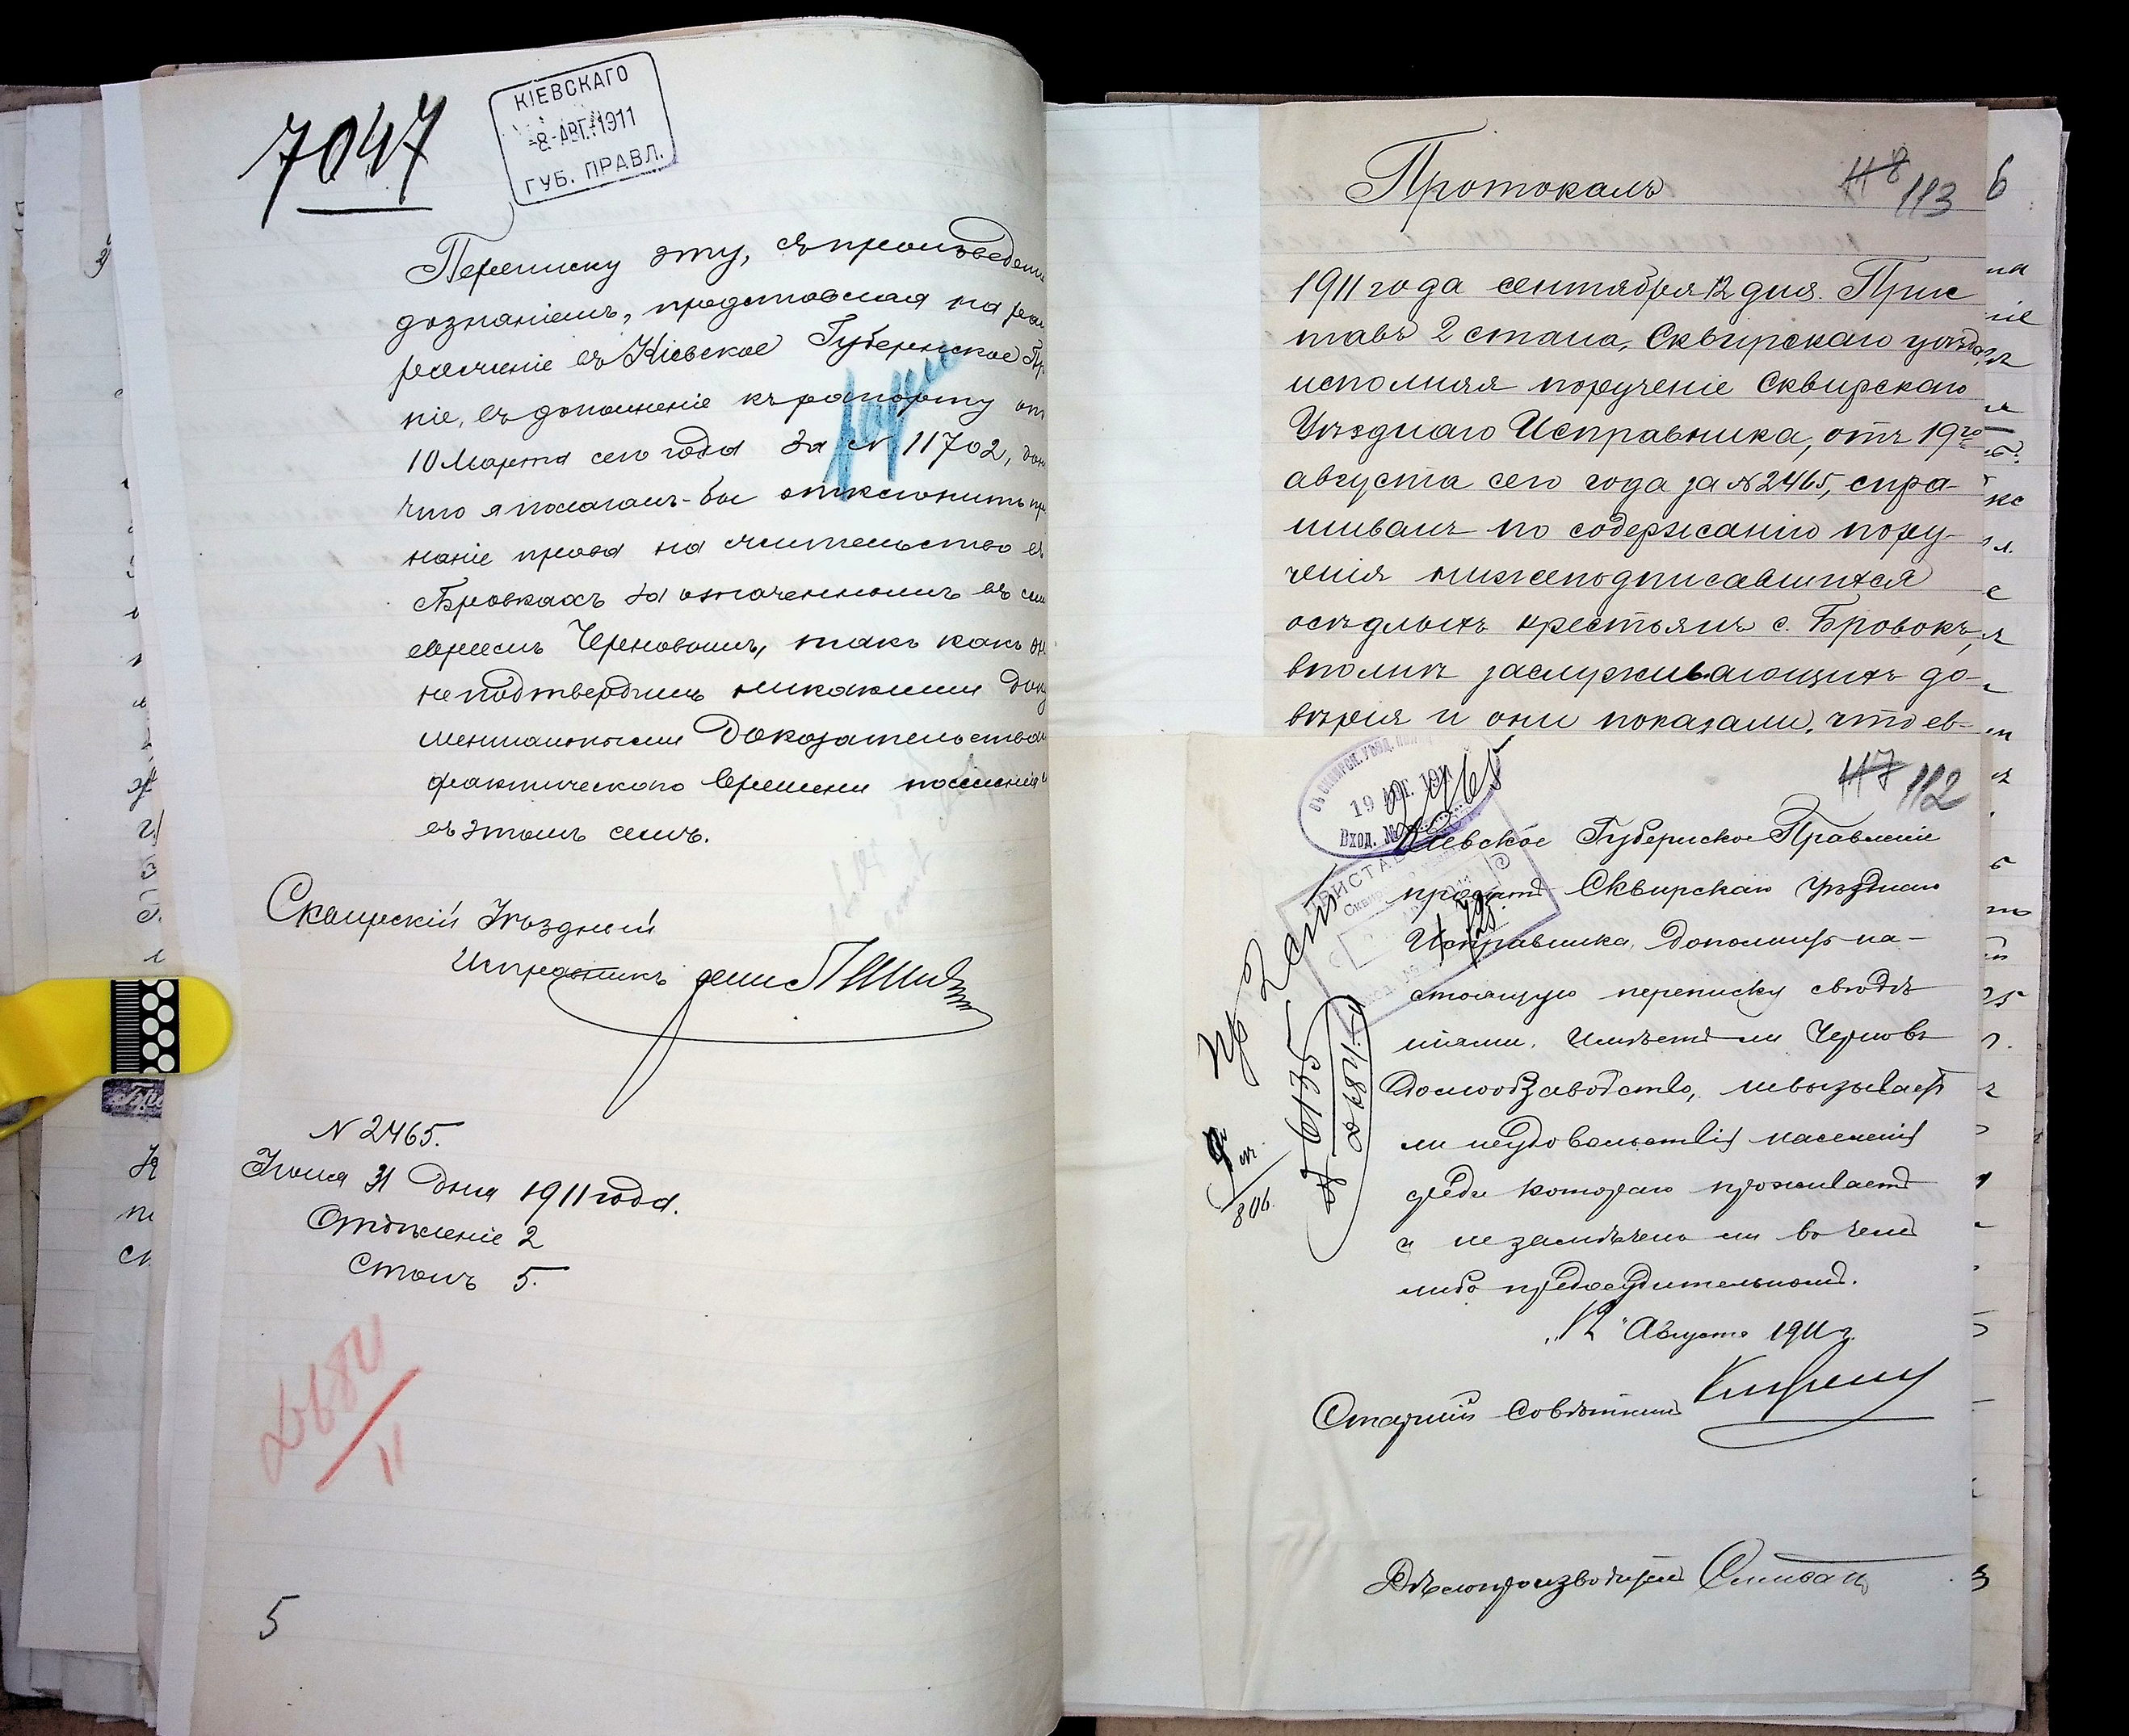 7047
КІЕВСКАГО
-8-АВГ.1911
ГУБ. ПРАВЛ.
Переписку эту, съ произведен
дознаніемъ, представляя на раз
решеніе въ Кіевское Губернское Пр
ніе, въ дополненіе къ рапорту от
10 Марта сего года за N 11702, дон
что я полагалъ-бы отклонить пр
наніе права на жительство въ
с. Бровкахъ за означеннымъ въ
евреемъ Черновымъ, такъ какъ он
не подтвердилъ никакими доку
ментальными доказательствам
фактического времени поселенія
въ этомъ селѣ.
Сквирскій Уѣздный
Исправникъ
N 2465.
Іюля 31 дня 1911 года.
Отдѣленіе 2
Столъ 5.
11
5
Протоколъ
118 113
1911 года сентября 12 дня. Прис
тавъ 2 стана, Сквирскаго уѣзда,
исполняя порученіе Сквирскаго
Уѣзднаго Исправника, отъ 19го
августа сего года за N 2465, спра-
шивалъ по содержанію пору-
ченія нижеподписавшихся
осѣдлыхъ крестьянъ с. Бровокъ,
вполнѣ заслуживающихъ до-
вѣрія и они показали, что ев-
117 112
19 АВГ. 1911
Вход. №
2465
Кіевское Губернское Правленіе
предлаг. Сквирскаго Уѣзднаго
Исправника, дополнить на-
стоящую переписку свѣдѣ
ніями. Имѣетъ ли Черновъ
домообзаводство, не вызываетъ
ли неудовольствія населенія
среди котораго проживаетъ
и не замѣченъ ли въ чемъ
либо предосудительномъ.
"12" Августа 1911 г.
Старшій Совѣтникъ
Дѣлопроизводитель
ПРИСТАВ
6135
806